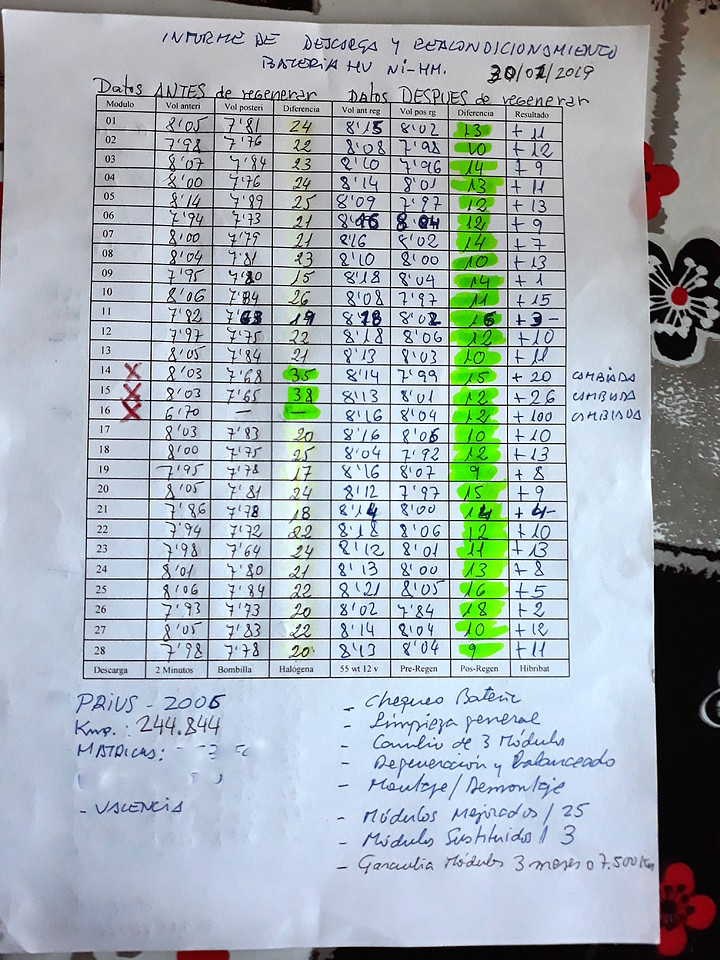 INFORME DE DESCARGA Y REACONDICIONAMIENTO
BATERIA HV Ni-MH. 30/01/2019
Datos ANTES de regenerar Datos DESPUES de regenerar
Modulo Vol anteri Vol posteri Diferencia Vol ant reg Vol pos rg Diferencia Resultado
01 8'05 7'81 24 8'15 8'02 13 +11
02 7'98 7'76 22 8'08 7'98 10 +12
03 8'07 7'84 23 8'10 7'96 14 +9
04 8'00 7'76 24 8'14 8'01 13 +11
05 8'14 7'89 25 8'09 7'97 12 +13
06 7'94 7'73 21 8'16 8'04 12 +9
07 8'00 7'79 21 8'16 8'02 14 +7
08 8'04 7'81 23 8'10 8'00 10 +13
09 7'95 7'80 15 8'18 8'04 14 +1
10 8'06 7'84 26 8'08 7'97 11 +15
11 7'82 7'63 19 8'18 8'02 16 +3-
12 7'97 7'75 22 8'18 8'06 12 +10
13 8'05 7'84 21 8'13 8'03 10 +11
14 X 8'03 7'68 35 8'14 7'99 15 +20 CAMBIADA
15 X 8'03 7'65 38 8'13 8'01 12 +26 CAMBIADA
16 X 6'70 — — 8'16 8'04 12 +100 CAMBIADA
17 8'03 7'83 20 8'16 8'06 10 +10
18 8'00 7'75 25 8'04 7'92 12 +13
19 7'95 7'78 17 8'16 8'07 9 +8
20 8'05 7'81 24 8'12 7'97 15 +9
21 7'86 7'78 18 8'14 8'00 14 +4-
22 7'94 7'72 22 8'18 8'06 12 +10
23 7'98 7'64 24 8'12 8'01 11 +13
24 8'01 7'80 21 8'13 8'00 13 +8
25 8'06 7'84 22 8'21 8'05 16 +5
26 7'93 7'73 20 8'02 7'84 18 +2
27 8'05 7'83 22 8'14 8'04 10 +12
28 7'98 7'78 20 8'13 8'04 9 +11
Descarga 2 Minutos Bombilla Halógena 55 wt 12 v Pre-Regen Pos-Regen Hibribat
PRIUS - 2006
Kmp.: 244.844
MATRICULA:
- VALENCIA
- Chequeo Bateria
- Limpieza general
- Cambio de 3 Módulos
- Regeneración y Balanceado
- Montaje/Demontaje
- Módulos Mejorados / 25
- Módulos Sustituidos / 3
- Garantia Módulos 3 meses o 7.500 Km